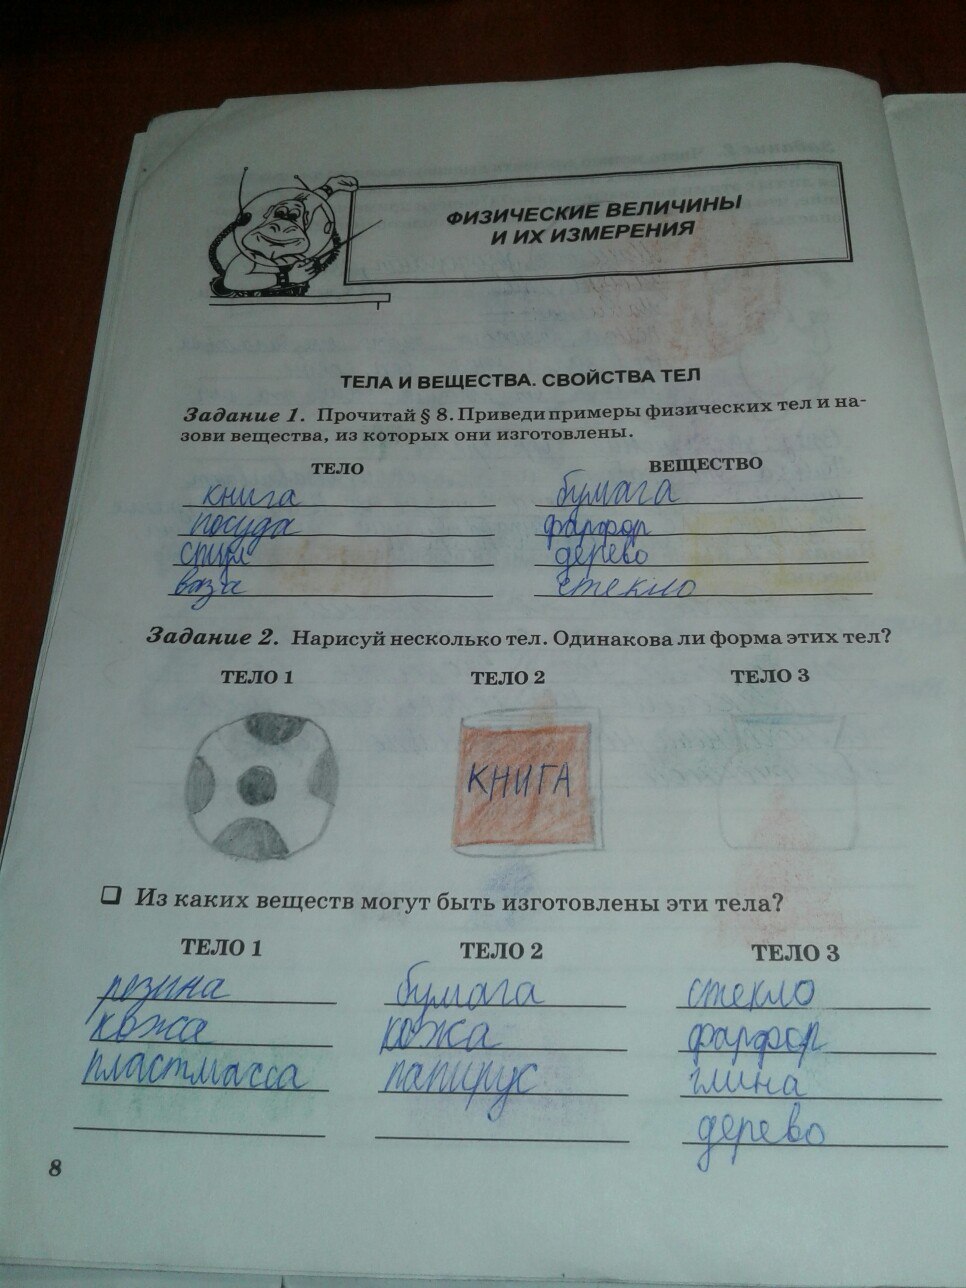 ФИЗИЧЕСКИЕ ВЕЛИЧИНЫ
И ИХ ИЗМЕРЕНИЯ
ТЕЛА И ВЕЩЕСТВА. СВОЙСТВА ТЕЛ
Задание 1. Прочитай § 8. Приведи примеры физических тел и на-
зови вещества, из которых они изготовлены.
ТЕЛО ВЕЩЕСТВО
книга бумага
посуда фарфор
стул дерево
ваза стекло
Задание 2. Нарисуй несколько тел. Одинакова ли форма этих тел?
ТЕЛО 1 ТЕЛО 2 ТЕЛО 3
КНИГА
Из каких веществ могут быть изготовлены эти тела?
ТЕЛО 1 ТЕЛО 2 ТЕЛО 3
резина бумага стекло
кожа кожа фарфор
пластмасса папирус глина
дерево
8